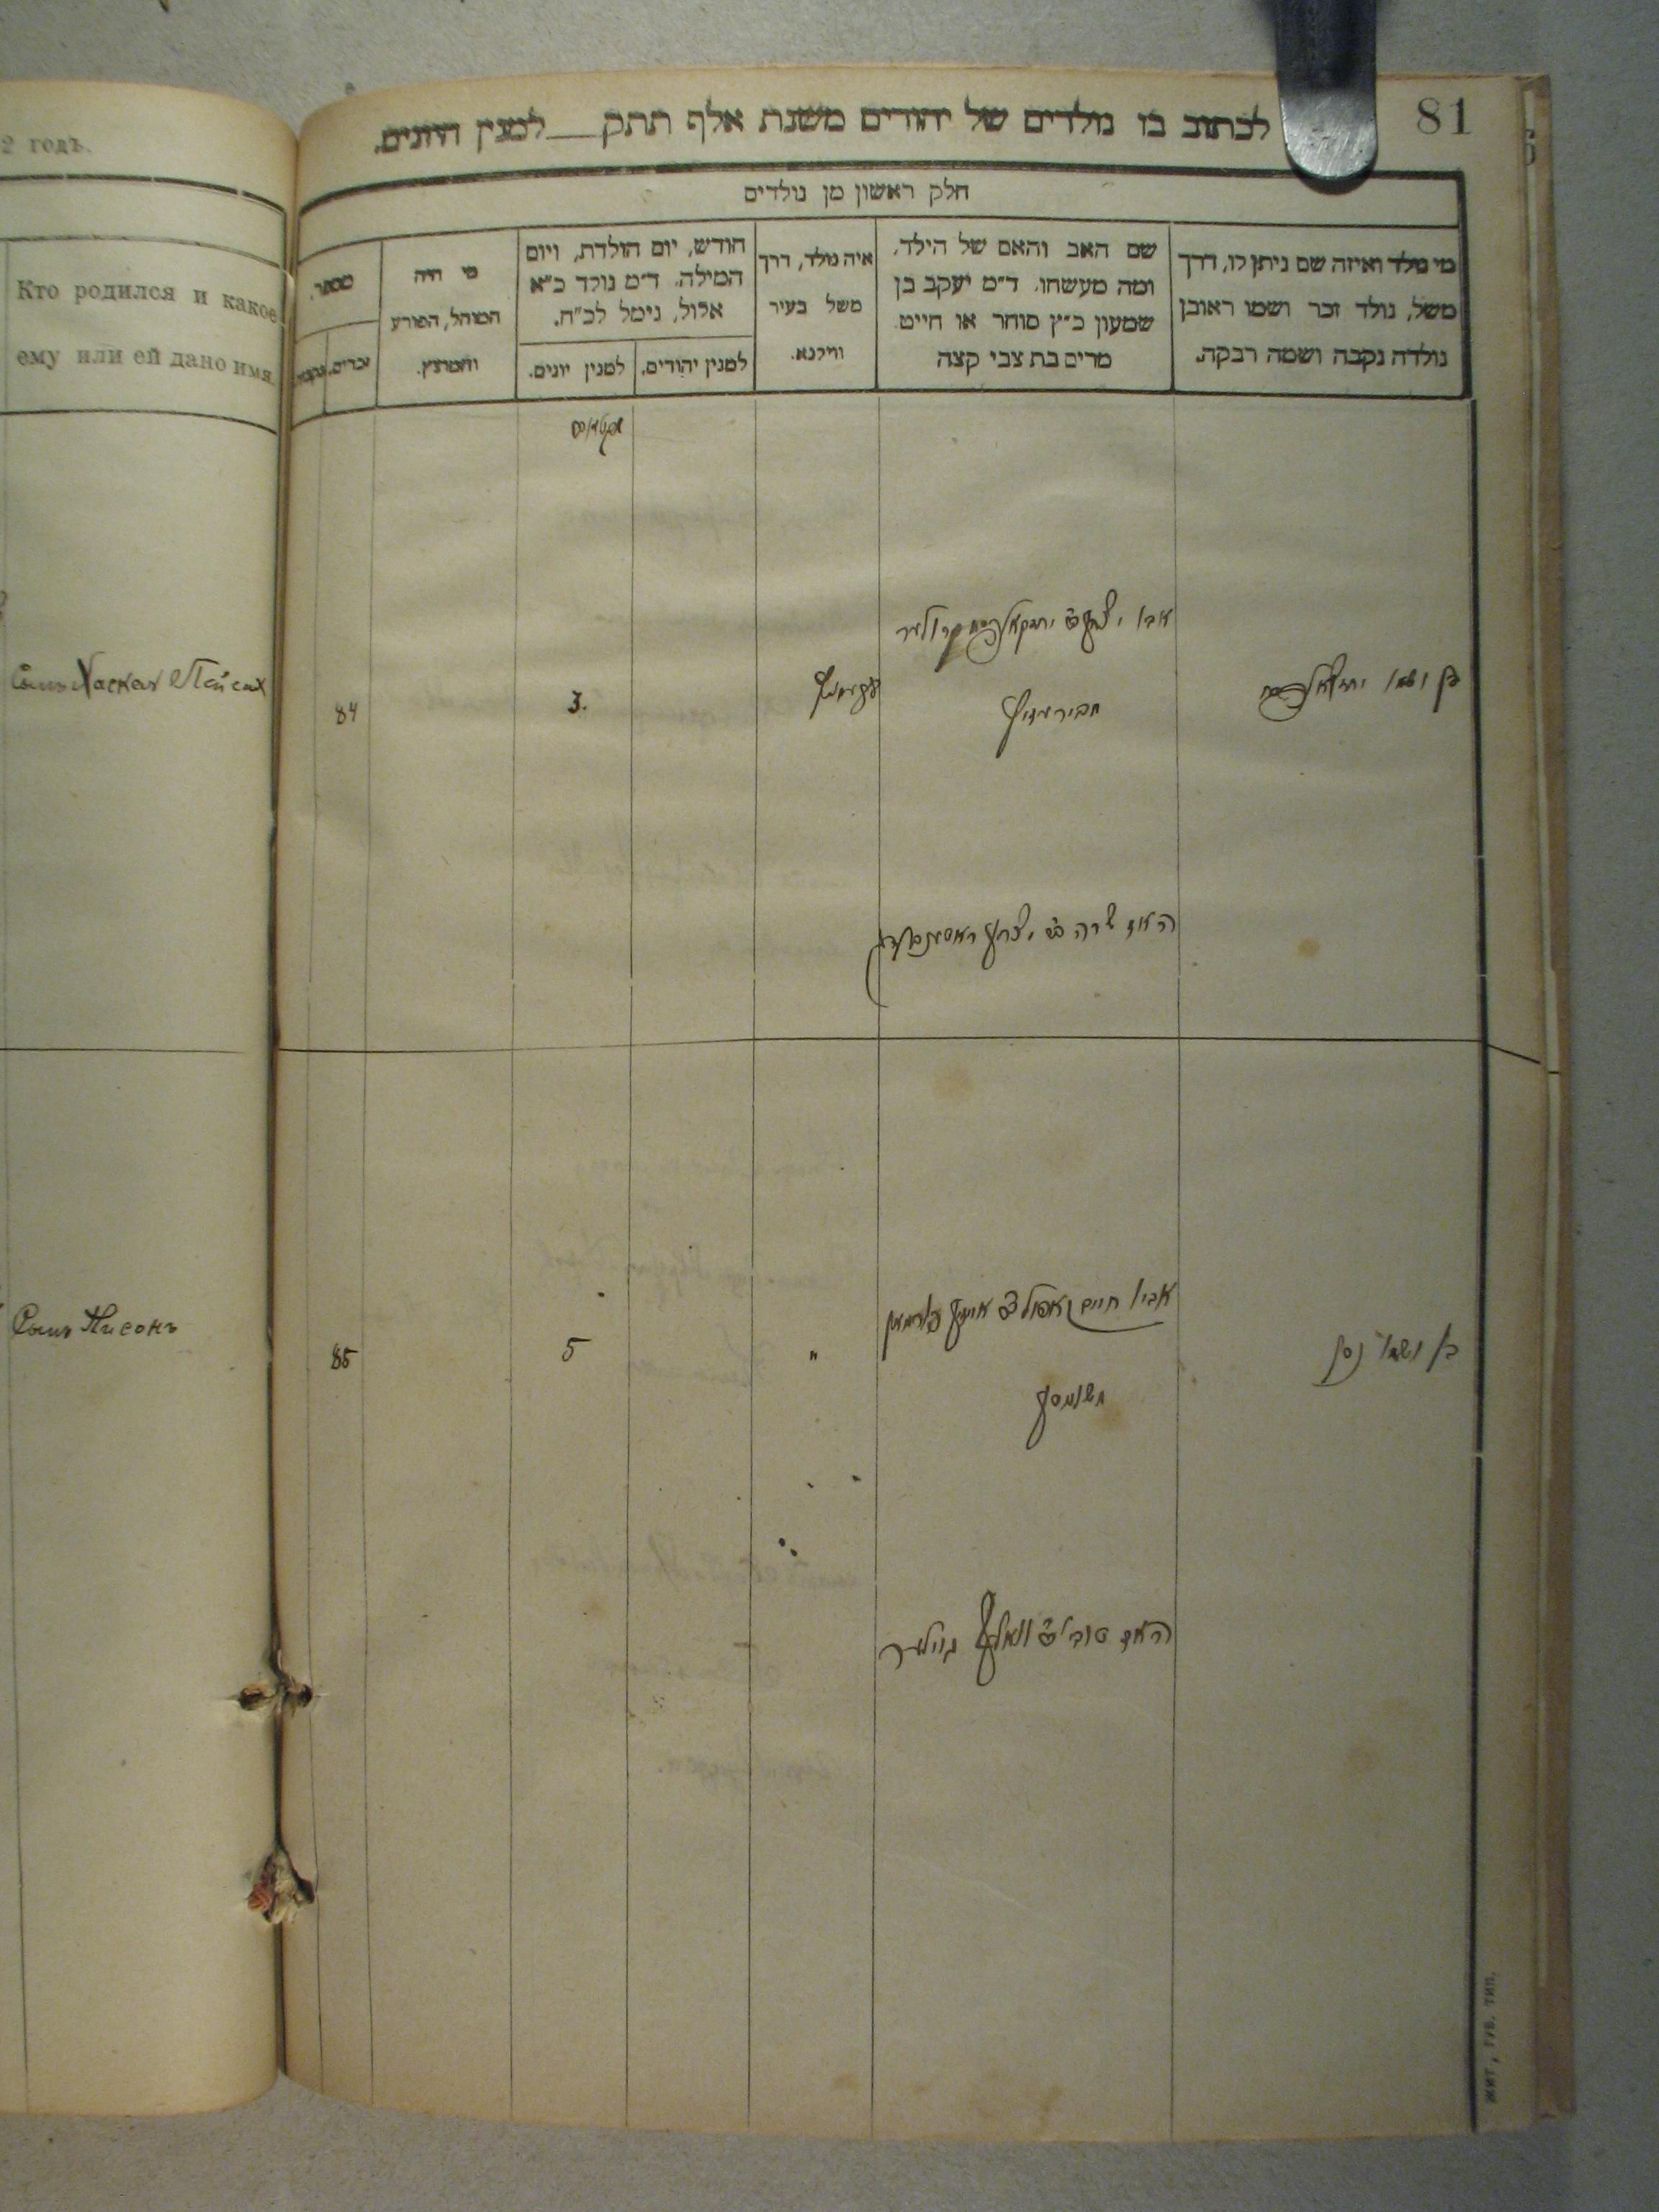 2 годъ.
Кто родился и какое
ему или ей дано имя.
Сынъ Хаскель Пейсах
Сынъ Нисонъ
81
לכתוב בו נולדים של יהודים משנת אלף תתק___למנין היונים.
חלק ראשון מן נולדים
מי נולד ואיזה שם ניתן לו, דרך
משל, נולד זכר ושמו ראובן
נולדה נקבה ושמה רבקה.
שם האב והאם של הילד,
ומה מעשהו. ד״מ יעקב בן
שמעון כ״ץ סוחר או חייט
מרים בת צבי קצה
איה נולד, דרך
משל בעיר
ווילנא.
חודש, יום הולדת, ויום
המילה. ד״מ נולד כ״א
אלול, נימל לכ״ח.
למנין יהודים.
למנין יונים.
מי היה
המוהל, הפורע
והמוצץ.
מספר.
זכרים.
נקבות.
בן ושמו יחזקאל פסח
אביו יצחק ב״ר יחזקאל פסח
3.
84
האם שרה ב״ר יצחק
בן ושמו ניסן
אביו חיים
"
5
85
האם טובי ב״ר וואלף
ЖИТ. ГУБ. ТИП.